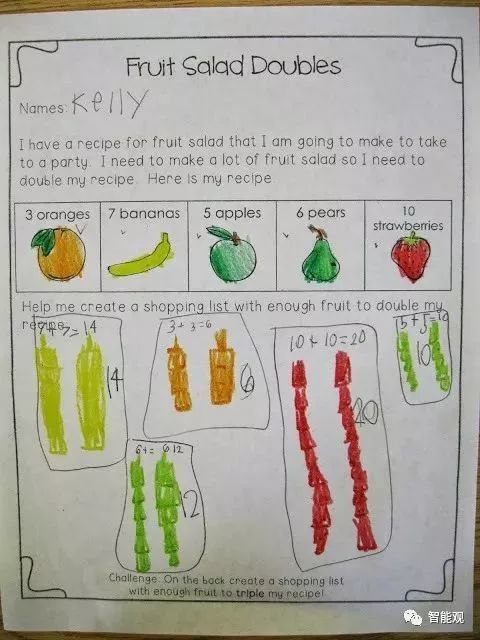 Fruit Salad Doubles
Names: Kelly
I have a recipe for fruit salad that I am going to make to take
to a party. I need to make a lot of fruit salad so I need to
double my recipe. Here is my recipe
3 oranges
7 bananas
5 apples
6 pears
10
strawberries
Help me create a shopping list with enough fruit to double my
recipe.
7+7=14
14
3+3=6
6
10+10=20
20
5+5=10
10
6+= 612
12
Challenge: On the back create a shopping list
with enough fruit to triple my recipe!
智能观